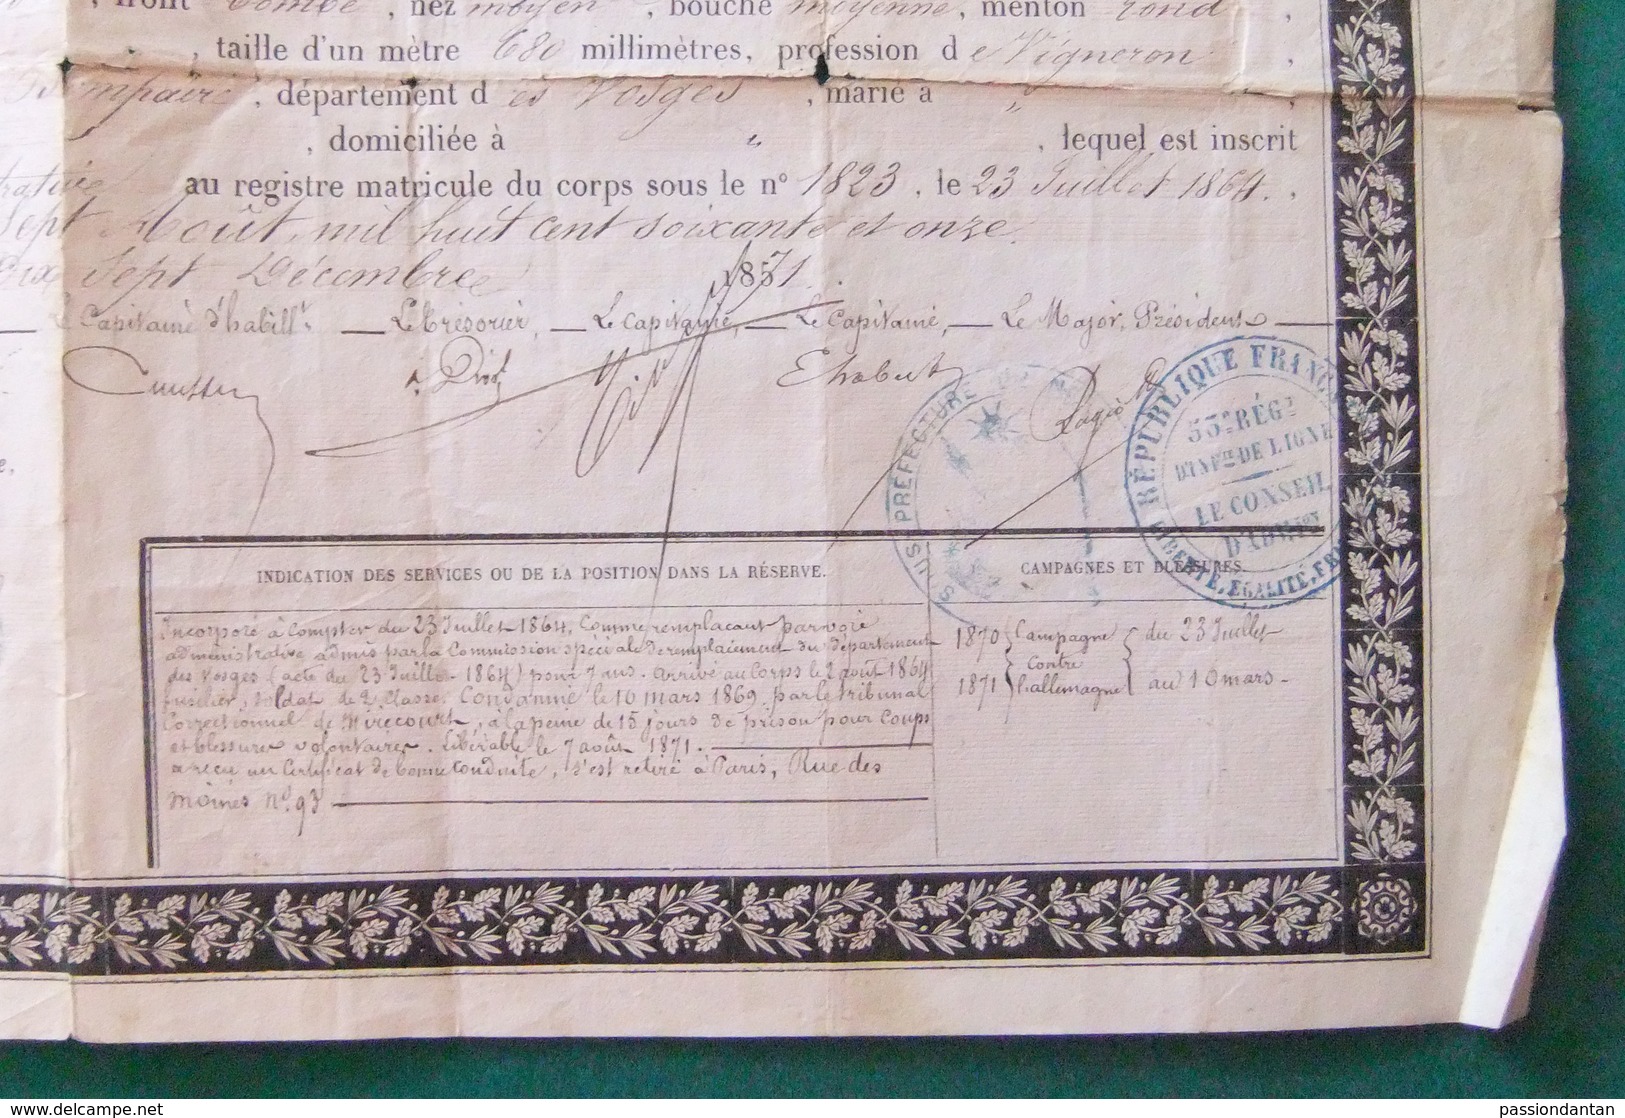 , front bombé , nez moyen , bouche moyenne, menton rond ,
, taille d'un mètre 680 millimètres, profession de Vigneron ,
, département des Vosges , marié à "
, domiciliée à " , lequel est inscrit
au registre matricule du corps sous le n° 1823, le 23 Juillet 1864. ,
Sept Août mil huit cent soixante et onze.
Dix Sept Décembre 1871.
Le Capitaine d'habillt, — Le trésorier, — Le Capitaine, — Le Capitaine, — Le Major, Président —
Ehabert
SOUS PRÉFECTURE
RÉPUBLIQUE FRANÇ
53e RÉGt
D'INFie DE LIGNE
LE CONSEIL
D'ADMion
LIBERTÉ, EGALITÉ, FR
INDICATION DES SERVICES OU DE LA POSITION DANS LA RÉSERVE.
CAMPAGNES ET BLESSURES.
Incorporé à Compter du 23 Juillet 1864, Comme remplaçant par voie
administrative admis par la Commission spéciale de remplacement du département
des Vosges (acte du 23 Juillet 1864) pour 7 ans. Arrivé au Corps le 2 août 1864
fusilier, soldat de 2e Classe. Condamné le 10 mars 1869 par le tribunal
Correctionnel de Mirecourt, à la peine de 15 jours de prison pour Coups
et blessures volontaires. Libérable le 7 août 1871.
a reçu un Certificat de bonne conduite, s'est retiré à Paris, Rue des
Moines No. 93
1870 Campagne du 23 Juillet
contre
1871 l'allemagne au 10 mars
passiondantan
www.delcampe.net